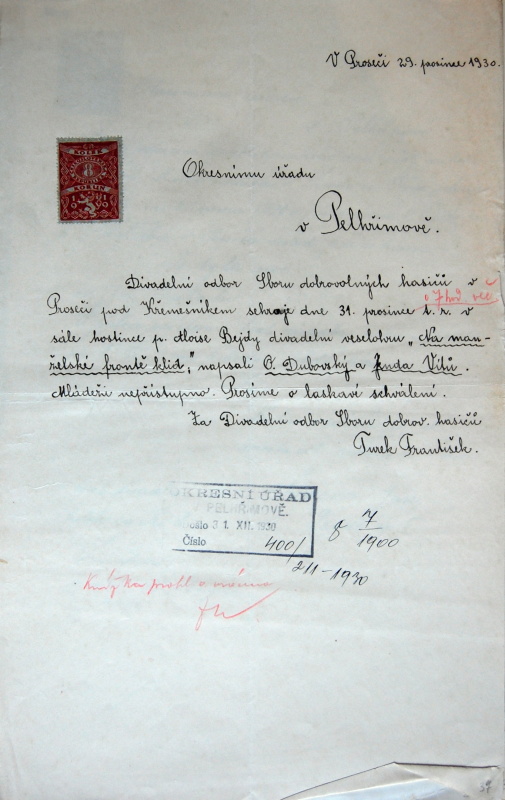 V Proseči 29. prosince 1930.
KOLEK
8
KORUN
1919
Okresnímu úřadu
v Pelhřimově.
Divadelní odbor Sboru dobrovolných hasičů v
"7 hod več
Proseči pod Křemešníkem sehraje dne 31. prosince t. r. v
sále hostince p. Aloise Bejdy divadelní veselohru „Na man-
želské frontě klid," napsali O. Dubovský a Jenda Vítů.
Mládeži nepřístupno. Prosíme o laskaví schválení.
Za Divadelní odbor Sboru dobrov. hasičů
Turek František.
OKRESNÍ ÚŘAD
PELHŘIMOVĚ.
Došlo 31. XII. 1930
Číslo 400/
7
1900
2/1 - 1930